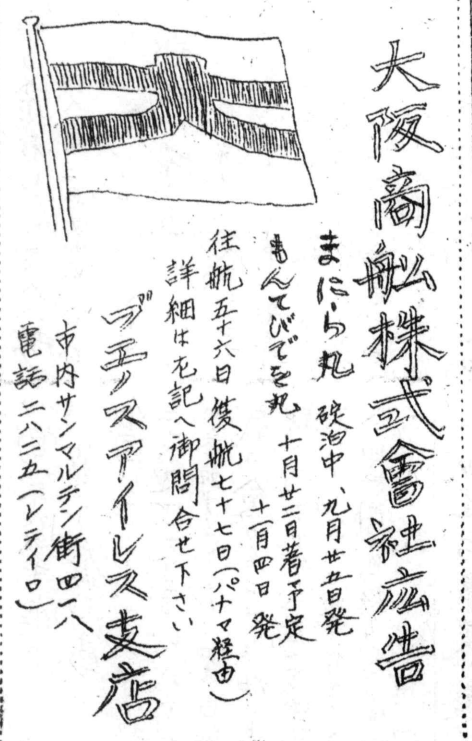 大阪商船株式會社広告
まにら丸 碇泊中、九月廿五日発
もんてびでを丸 十月廿二日着予定
十一月四日 発
往航五十六日 復航七十七日(パナマ経由)
詳細は左記へ御問合せ下さい
ブエノスアイレス支店
市内サンマルテン街四一八
電話二八二五(レティロ)